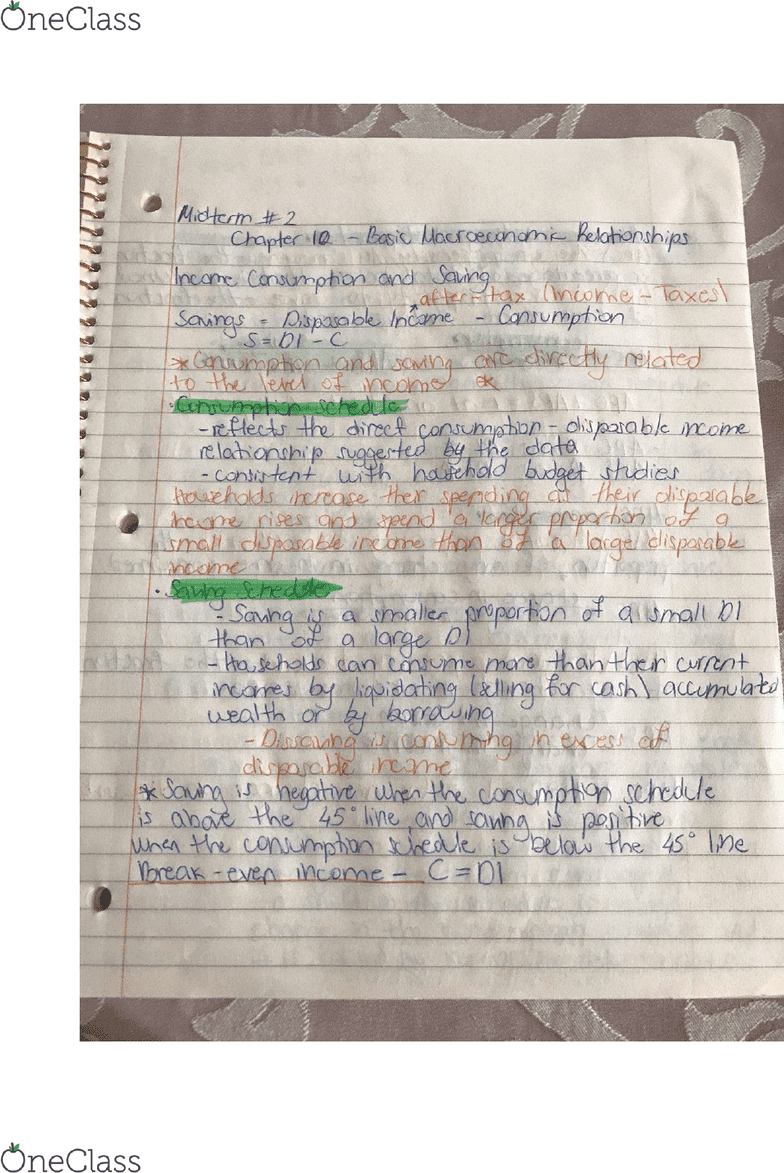 OneClass
Midterm # 2
Chapter 10 - Basic Macroeconomic Relationships
Income Consumption and Saving
after-tax (Income - Taxes)
Savings = Disposable Income - Consumption
S = DI - C
* Consumption and saving are directly related
to the level of income *
· Consumption schedule
- reflects the direct consumption - disposable income
relationship suggested by the data
- consistent with household budget studies
Households increase their spending as their disposable
income rises and spend a larger proportion of a
small disposable income than of a large disposable
income
· Saving Schedule
- Saving is a smaller proportion of a small DI
than of a large DI
- Households can consume more than their current
incomes by liquidating (selling for cash) accumulated
wealth or by borrowing
- Dissaving is consuming in excess of
disposable income
* Saving is negative when the consumption schedule
is above the 45° line and saving is positive
when the consumption schedule is below the 45° line
Break-even income - C = DI
OneClass